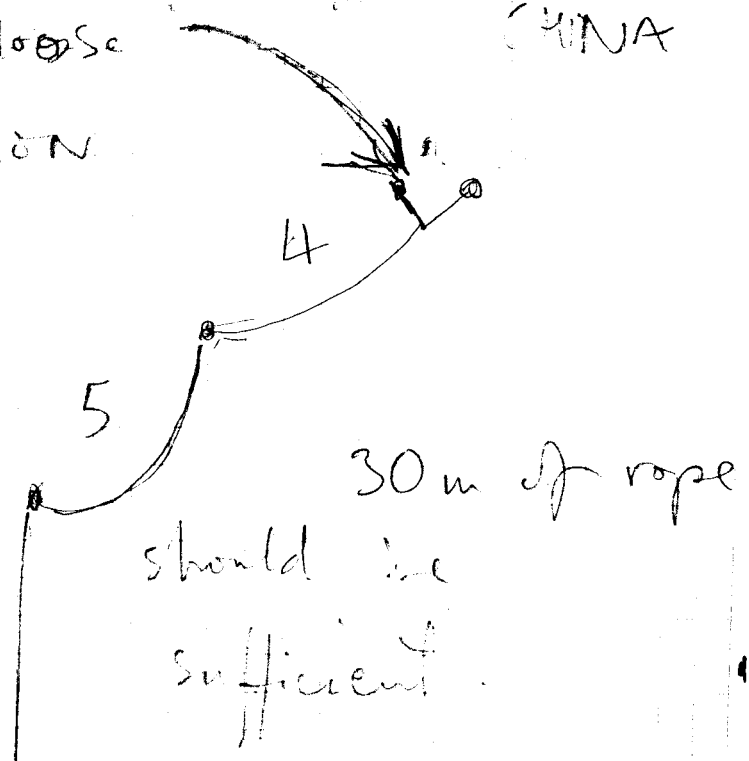 loose
CHINA
ON
4
5
30 m of rope
should be
sufficient.